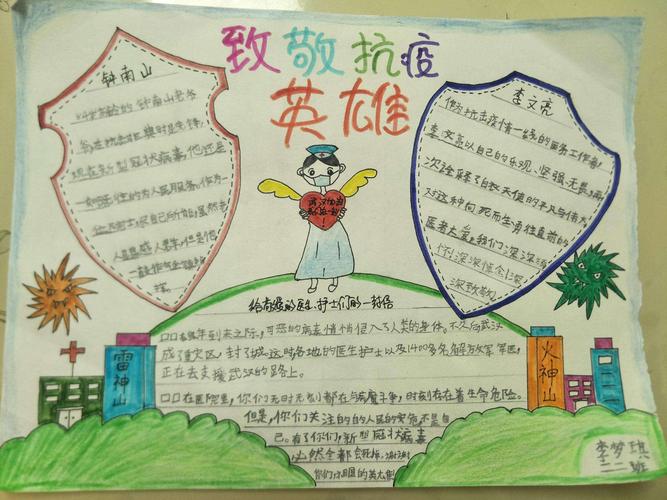 致敬抗疫
英雄
钟南山
84岁高龄的钟南山老爷
现在新型冠状病毒他还是
一如既往的为人民服务，作为
李文亮
作为抗击疫情一线的医务工作者
李文亮以自己的乐观、坚强、无畏，再
次诠释了白衣天使的平凡与伟大
对这种向死而生勇往直前的
医者大爱，我们深深
怀！深深悼念！深
深致敬！
武汉加油
给敬爱的医生、护士们的一封信
年到来之际，可恶的病毒悄悄侵入了人类的身体。不久后武汉
成了重灾区，封了城，这时各地的医生护士以及1400多名解放军军医，
正在去支援武汉的路上。
在医院里，你们无时无刻都在与病魔斗争，时刻存在着生命危险。
但是，你们关注的的人民的安危不是自
己。有了你们，新型冠状病毒
必然全都会死掉
你们你眼的英雄
雷神山
火神山
李梦琪
二二班